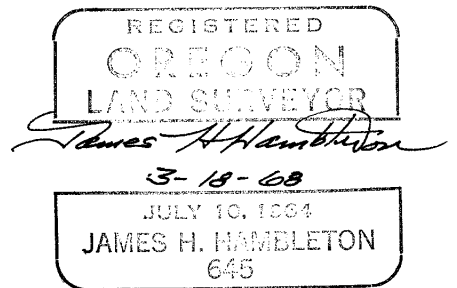 REGISTERED
OREGON
LAND SURVEYOR
James H Hambleton
3-18-68
JULY 10, 1964
JAMES H. HAMBLETON
645